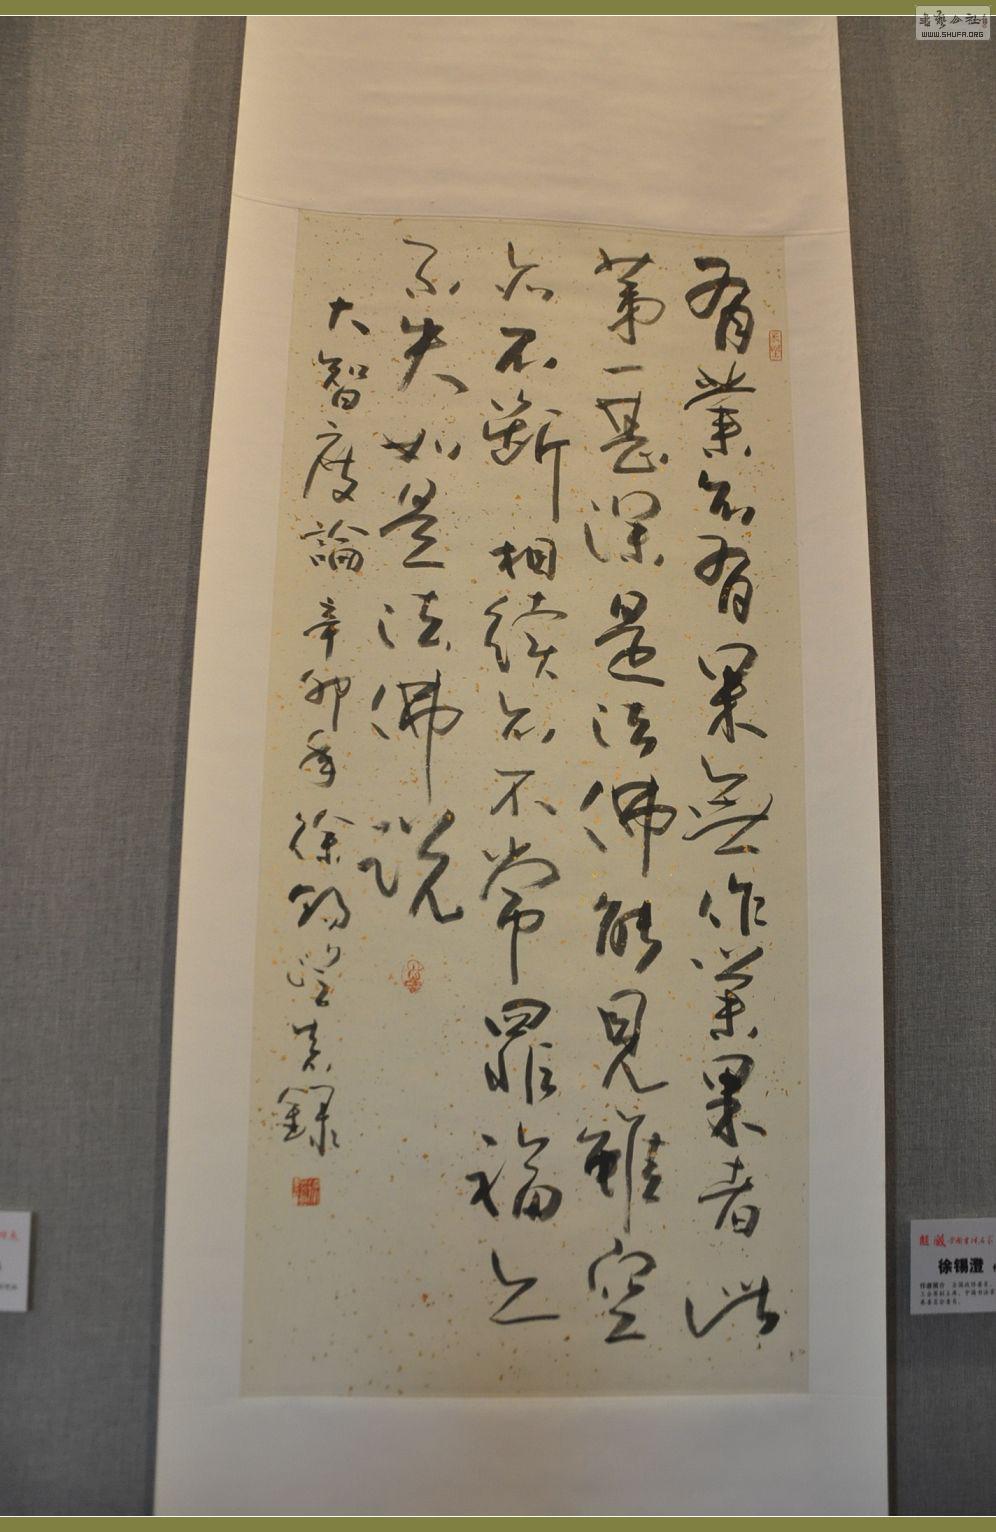 有業亦有果無作業果者此
第一甚深是法佛能見雖空
亦不斷相續亦不常罪福亦
不失如是法佛説
大智度論辛卯年徐錫澄敬錄
徐锡澄
WWW.SHUFA.ORG